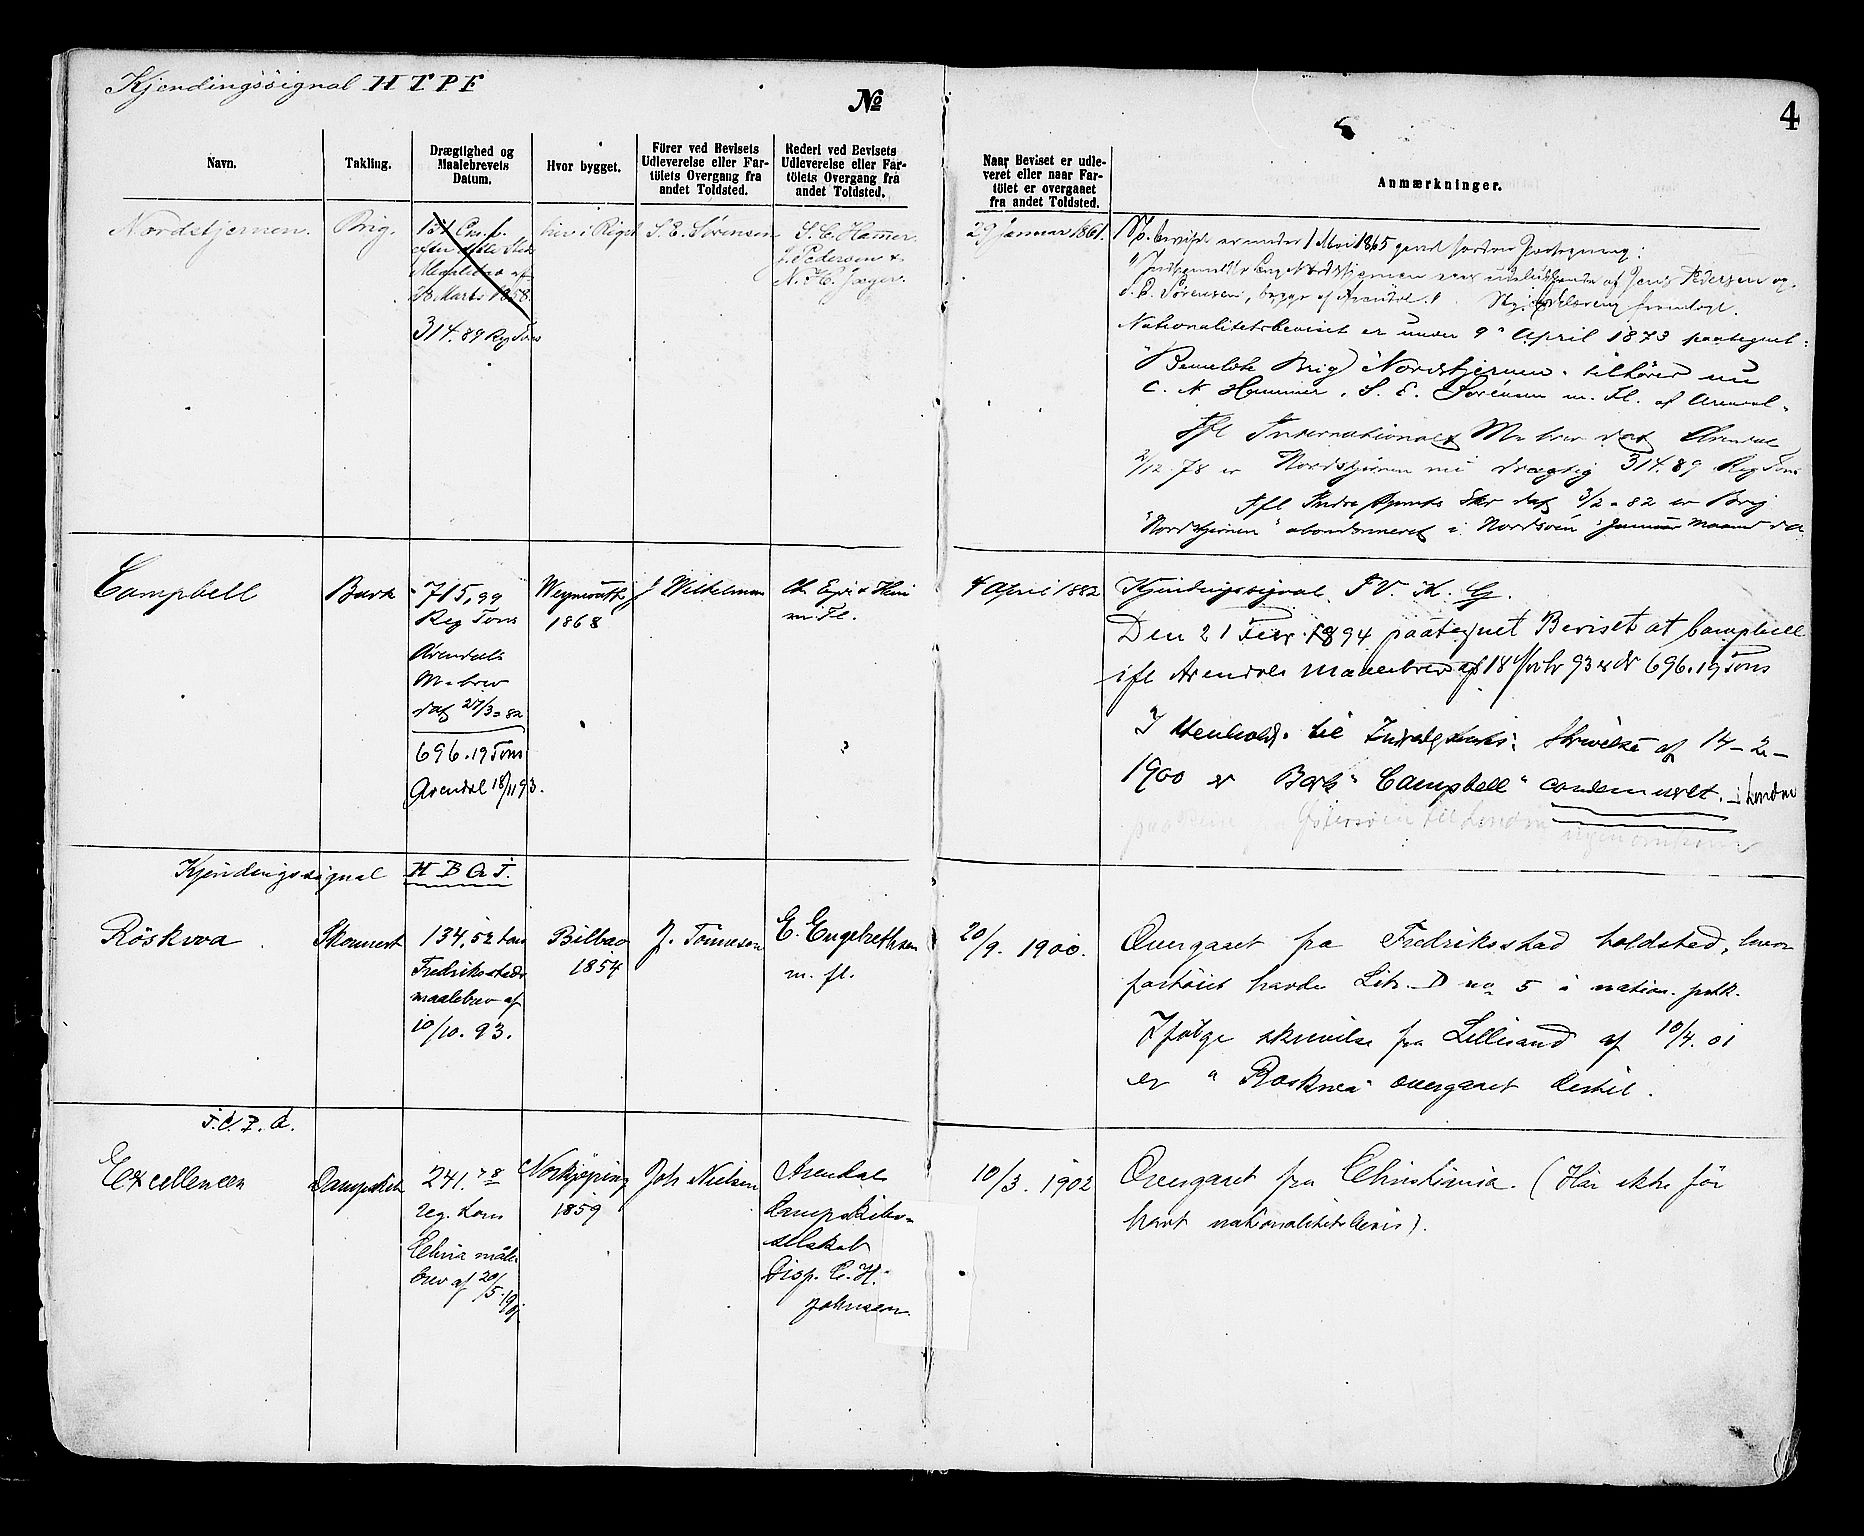 Kjendingssignal H T P F
№
4
Navn.
Takling.
Drægtighed og
Maalebrevets
Datum.
Hvor bygget.
Fører ved Bevisets
Udleverelse eller Far-
töiets Overgang fra
andet Toldsted.
Rederi ved Bevisets
Udleverelse eller Far-
töiets Overgang fra
andet Toldsted.
Naar Beviset er udle-
veret eller naar Far-
töiet er overgaaet
fra andet Toldsted.
Anmærkninger.
Nordstjernen.
Brig.
131
Marts 1858.
314.89 Reg Tons
her i Riget
S. E. Sörensen
Hammer
J. Pedersen &
N. H. Jæger.
29 januar 1861.
1 Mai 1865
Jens Pedersen og
S. E. Sörensen, begge af Arendal.
Nationalitetsbeviset er under 9 April 1873 paategnet:
Bemeldte Brig Nordstjernen tilhörer nu
C. N. Hammer, S. E. Sörensen m. Fl. af Arendal
Ifl International M-brev dat Arendal
2/12 78 er Nordstjernen nu drægtig 314.89 Reg Tons
Ifl Skr dat 3/2 - 82 er Brig
"Nordstjernen" abandonneret i Nordsöen Januar Maaned
Campbell
Bark
715,99
Reg Tons
Arendals
M-brev
dat 27/3 82
696.19 Tons
Arendal 18/11 93.
Weymouth
1868
J Wilhelmsen
m. Fl.
4 April 1882
Kjendingssignal. J V. K. G.
Den 21 Febr. 1894 paategnet Beviset at Campbell
ifl Arendals Maalebrev af 18 Novbr 93 er dr 696.19 Tons
I Henhold til Skrivelse af 14-2-
1900 er Bark "Campbell" condemneret. i London
til London
Kjendingssignal H B Q T.
Röskwa
Skonnert
134,52 tons
Fredriksstads
maalebrev af
10/10. 93.
Bilbao
1854
J. Tönneson
E. Engebrethsen
m. fl.
20/9. 1900.
Overgaaet fra Fredriksstad toldsted, hvor
fartöiet havde Litr. D no 5 i nation. protk.
Ifölge skrivelse fra Lillesand af 10/4. 01
er "Roskwa" overgaaet dertil.
Excellencen
Dampskib
241.78
reg. tons
Chria måle
brev af 20/5 1901
Norkjöping
1859
Joh Nielsen
Arendals
Dampskibs-
selskab
Disp. C. H.
Johnsen
10/3. 1902
Overgaaet fra Christiania. (Har ikke för
havt nationalitetsbevis).